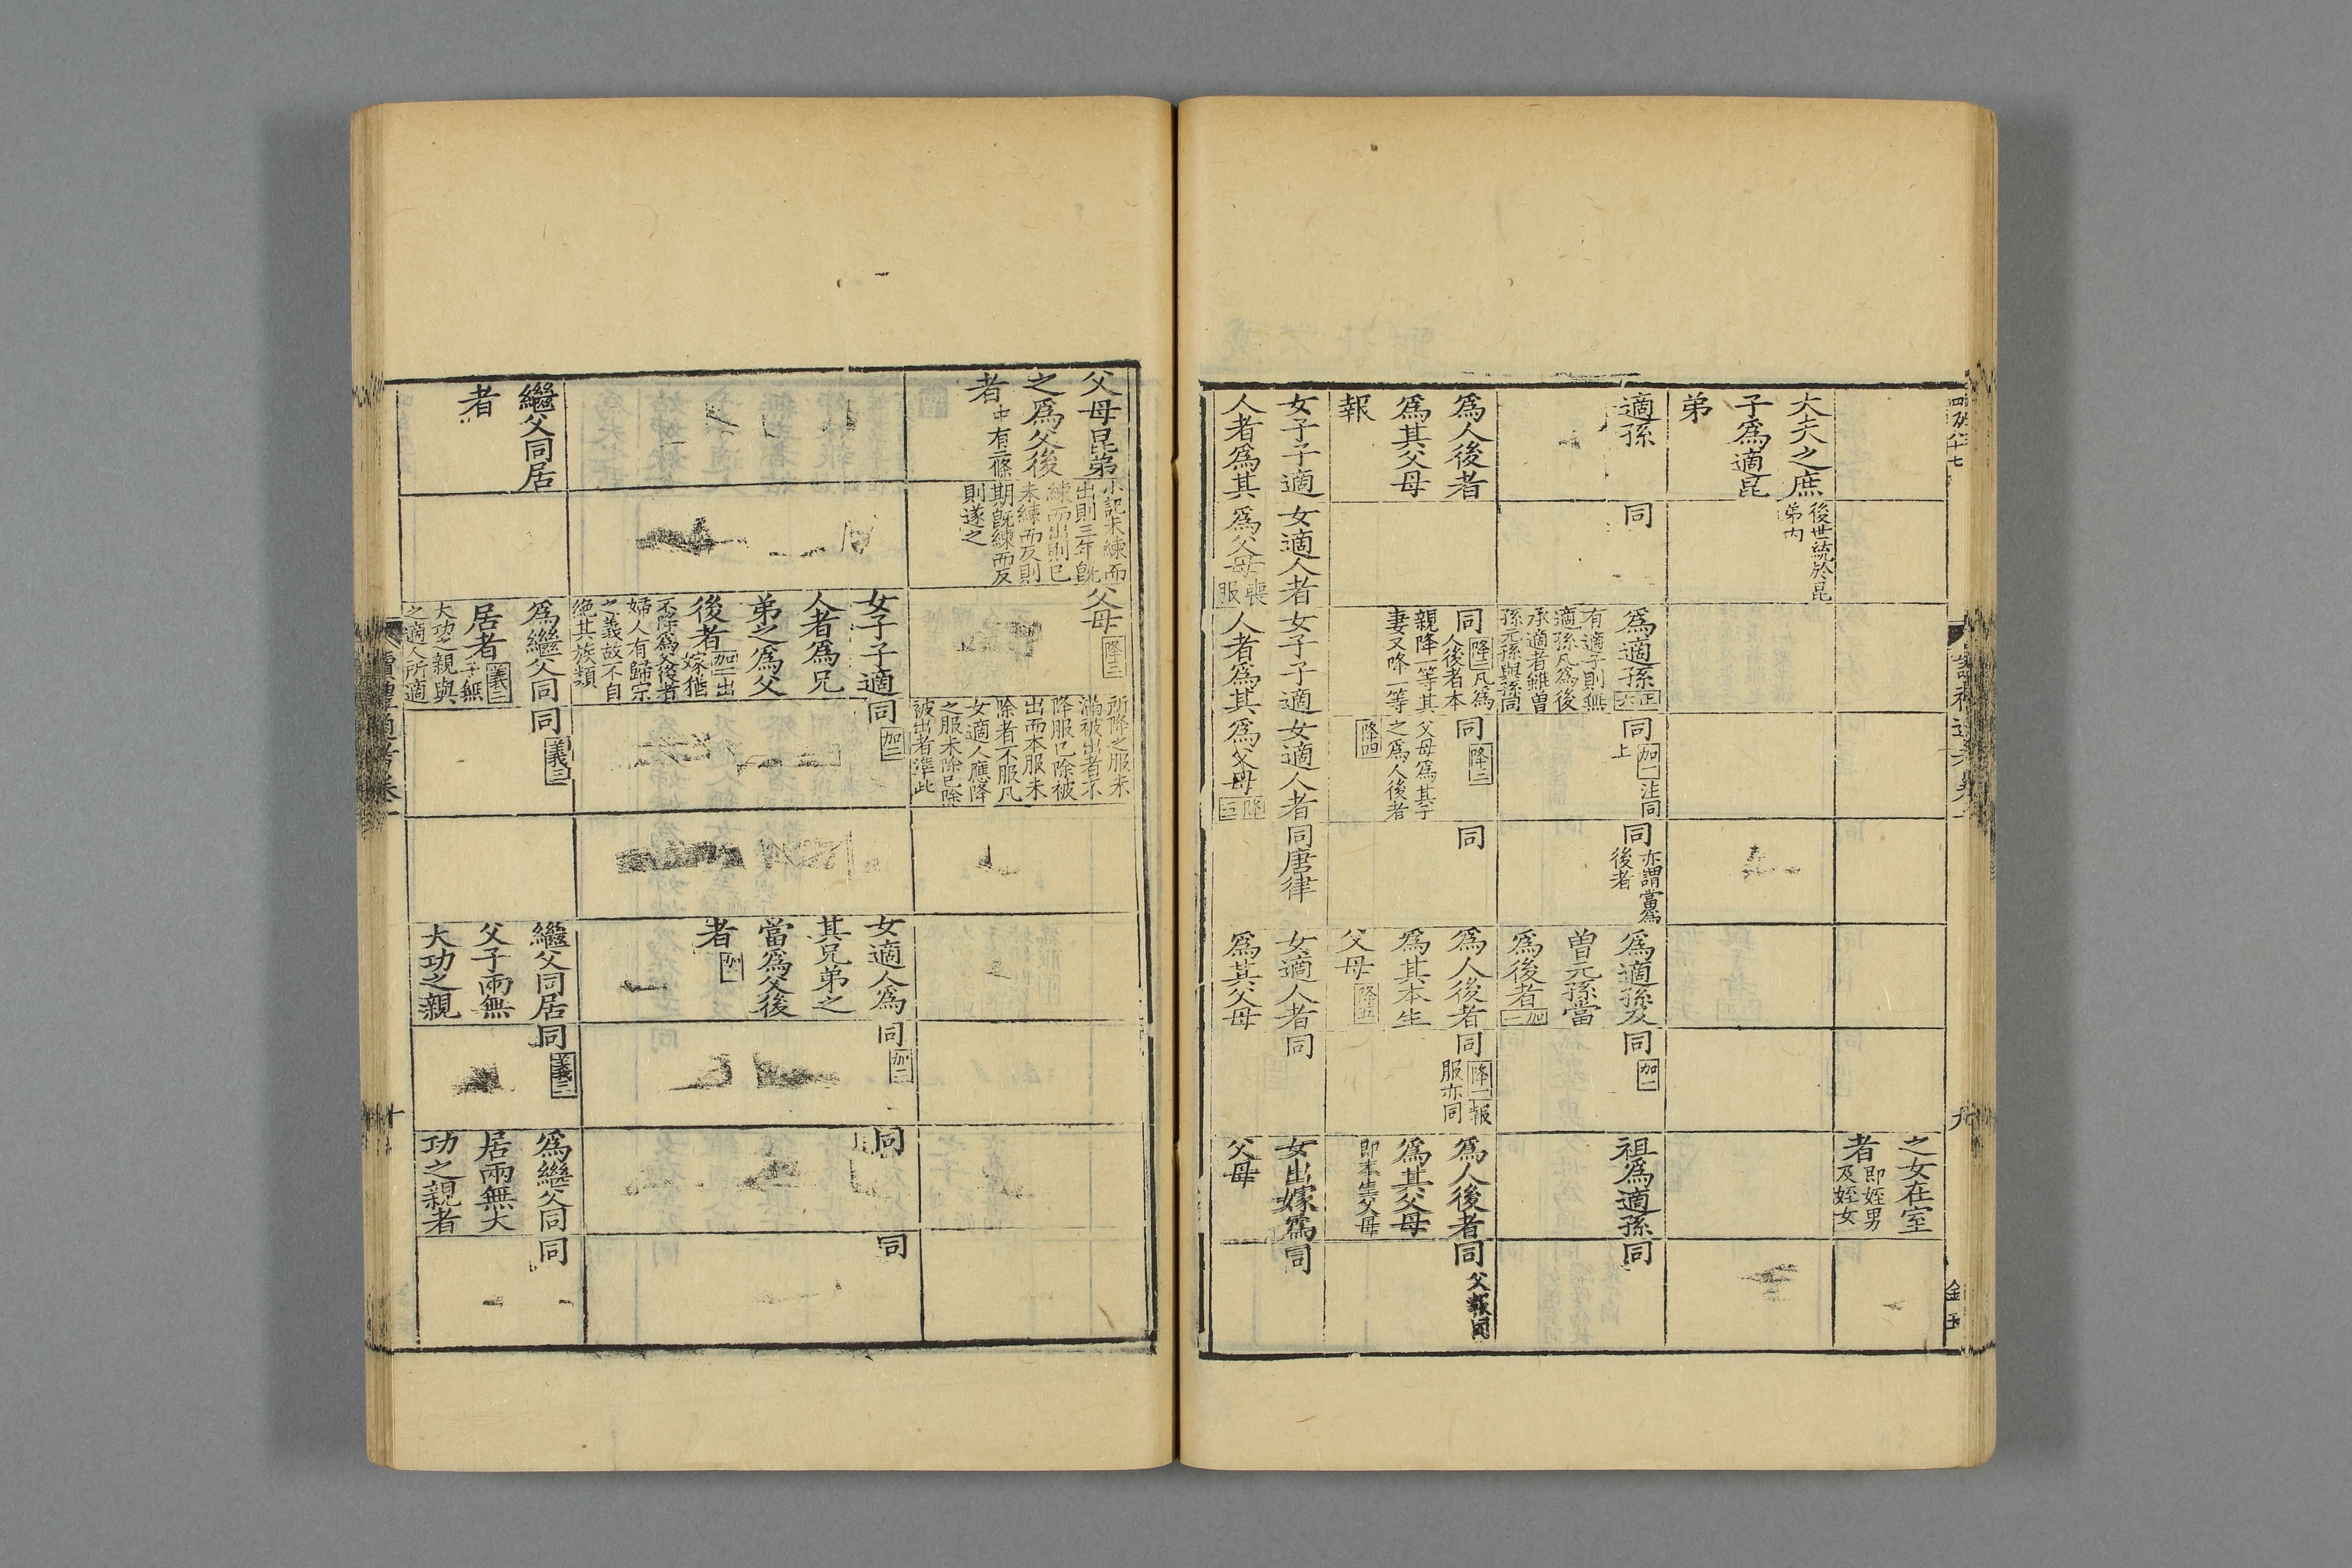 之女在室
者
即姪男
及姪女
大夫之庶
子爲適昆
弟
後世統於昆
弟內
適孫
同
爲適孫
正六
有適子則無
適孫凡爲後
承適者雖曾
孫元孫與孫同
同
加一
注同
上
同
亦謂當爲
後者
爲適孫及
曾元孫當
爲後者
加一
同
加一
祖爲適孫
同
爲人後者
爲其父母
報
同
降三
凡爲
人後者本
親降一等其
妻又降一等
同
降三
父母爲其子
之爲人後者
降四
同
爲人後者
爲其本生
父母
降五
同
降一
報
服亦同
爲人後者
爲其父母
即本生父母
同
父報同
女子子適
人者爲其
女適人者
爲父母
喪服
女子子適
人者爲其
女適人者
爲父母
降三
同唐律
女適人者
爲其父母
同
女出嫁爲
父母
同
父母昆弟
之爲父後
者
中有二條
小記未練而
出則三年旣
練而出則已
未練而反則
期旣練而反
則遂之
父母
降三
所降之服未
滿被出者不
降服已除被
出而本服未
除者不服凡
女適人應降
之服未除已除
被出者準此
女子子適
人者爲兄
弟之爲父
後者
加一
出
嫁猶
不降爲父後者
婦人有歸宗
之義故不自
絕其族類
同
加二
女適人爲
其兄弟之
當爲父後
者
加一
同
加二
同
同
繼父同居
者
爲繼父同
居者
義三
子無
大功之親與
之適人所適
同
義三
繼父同居
父子兩無
大功之親
同
義三
爲繼父同
居兩無大
功之親者
同
讀禮通考卷一
十